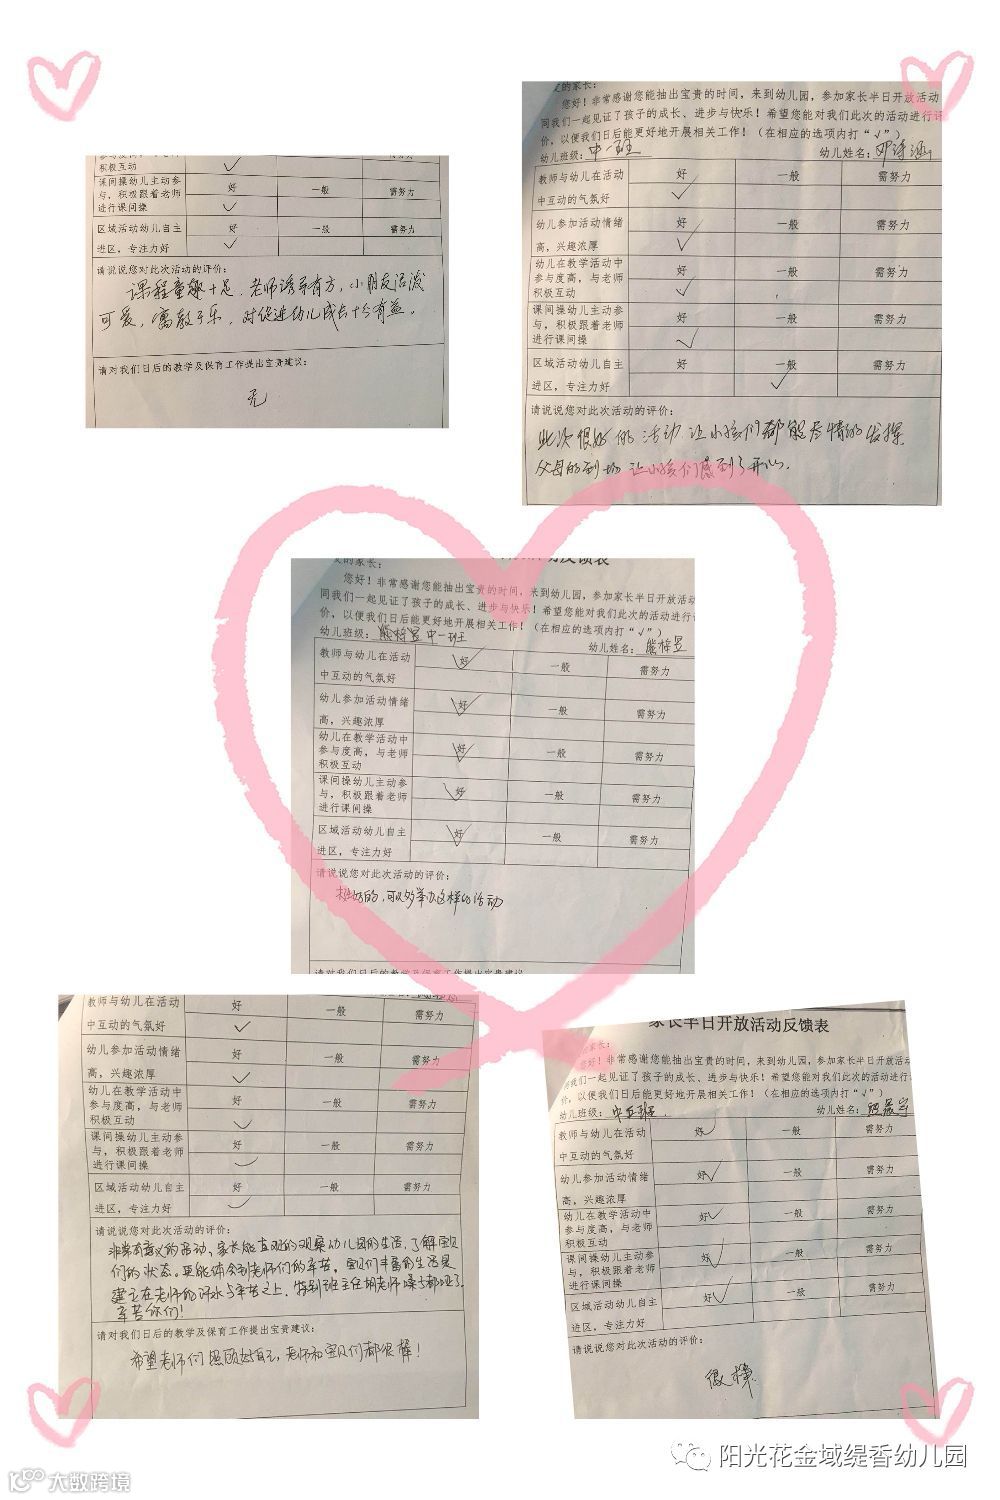 积极互动
课间操幼儿主动参与，积极跟着老师进行课间操
好 一般 需努力
✓
区域活动幼儿自主进区，专注力好
好 一般 需努力
✓
请说说您对此次活动的评价：
课程童趣十足，老师诱导有方，小朋友活泼
可爱，寓教于乐，对促进幼儿成长十分有益。
请对我们日后的教学及保育工作提出宝贵建议：
无
的家长：
您好！非常感谢您能抽出宝贵的时间，来到幼儿园，参加家长半日开放活动
同我们一起见证了孩子的成长、进步与快乐！希望您能对我们此次的活动进行评
价，以便我们日后能更好地开展相关工作！（在相应的选项内打“√”）
幼儿班级：中一班 幼儿姓名：邓诗涵
教师与幼儿在活动中互动的气氛好
好 一般 需努力
✓
幼儿参加活动情绪高，兴趣浓厚
好 一般 需努力
✓
幼儿在教学活动中参与度高，与老师积极互动
好 一般 需努力
✓
课间操幼儿主动参与，积极跟着老师进行课间操
好 一般 需努力
✓
区域活动幼儿自主进区，专注力好
好 一般 需努力
✓
请说说您对此次活动的评价：
此次很好的活动，让小孩们都能尽情的发挥
父母的到场让小孩们感到了开心.
反馈表
的家长：
您好！非常感谢您能抽出宝贵的时间，来到幼儿园，参加家长半日开放活动
同我们一起见证了孩子的成长、进步与快乐！希望您能对我们此次的活动进行评
价，以便我们日后能更好地开展相关工作！（在相应的选项内打“√”）
幼儿班级：熊梓昱 中一班 幼儿姓名：熊梓昱
教师与幼儿在活动中互动的气氛好
好✓ 一般 需努力
幼儿参加活动情绪高，兴趣浓厚
好✓ 一般 需努力
幼儿在教学活动中参与度高，与老师积极互动
好✓ 一般 需努力
课间操幼儿主动参与，积极跟着老师进行课间操
好✓ 一般 需努力
区域活动幼儿自主进区，专注力好
好✓ 一般 需努力
请说说您对此次活动的评价：
挺好的，可以多举办这样的活动
请对我们日后的教学及保育工作提出宝贵建议
教师与幼儿在活动中互动的气氛好
好 一般 需努力
✓
幼儿参加活动情绪高，兴趣浓厚
好 一般 需努力
✓
幼儿在教学活动中参与度高，与老师积极互动
好 一般 需努力
✓
课间操幼儿主动参与，积极跟着老师进行课间操
好 一般 需努力
✓
区域活动幼儿自主进区，专注力好
好 一般 需努力
✓
请说说您对此次活动的评价：
非常有意义的活动，家长能直观的观察幼儿园的生活，了解宝贝
们的状态。更能体会到老师们的辛苦，宝贝们丰富的生活是
建立在老师的汗水与辛苦之上，特别班主任胡老师嗓子都哑了
辛苦你们！
请对我们日后的教学及保育工作提出宝贵建议：
希望老师们照顾好自己，老师和宝贝们都很棒！
家长半日开放活动反馈表
家长：
您好！非常感谢您能抽出宝贵的时间，来到幼儿园，参加家长半日开放活动
同我们一起见证了孩子的成长、进步与快乐！希望您能对我们此次的活动进行
价，以便我们日后能更好地开展相关工作！（在相应的选项内打“√”）
幼儿班级： 幼儿姓名：
教师与幼儿在活动中互动的气氛好
好✓ 一般 需努力
幼儿参加活动情绪高，兴趣浓厚
好✓ 一般 需努力
幼儿在教学活动中参与度高，与老师积极互动
好✓ 一般 需努力
课间操幼儿主动参与，积极跟着老师进行课间操
好✓ 一般 需努力
区域活动幼儿自主进区，专注力好
好✓ 一般 需努力
请说说您对此次活动的评价：
很棒
阳光花金域缇香幼儿园
大数跨境